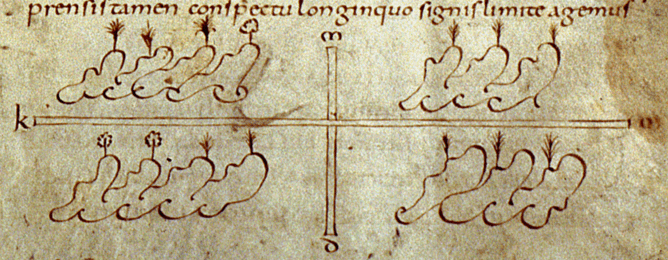 prensis tamen conspectu longinquo signis limite agemus
m
k m
d